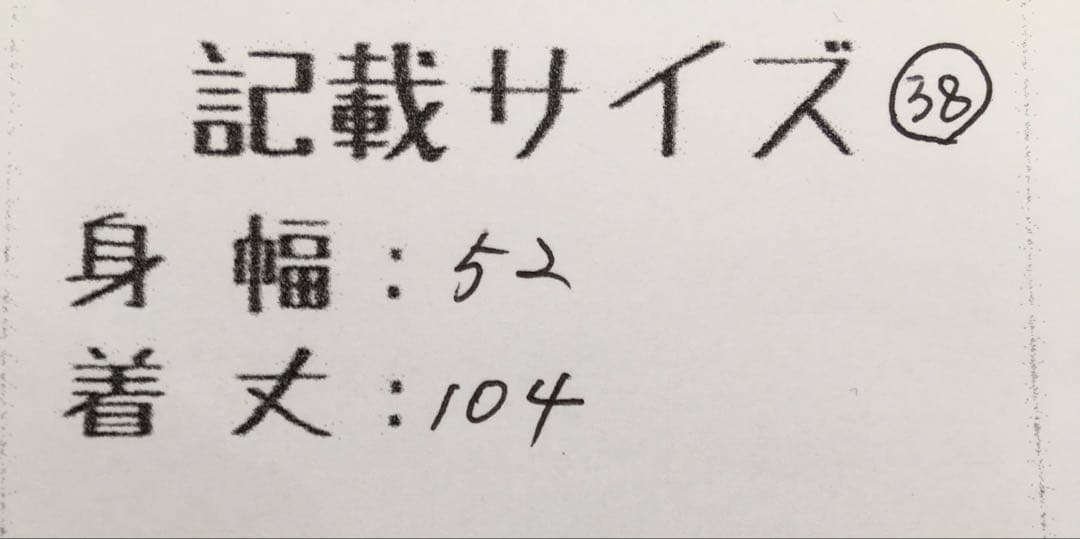 記載サイズ 38
身幅:52
着丈:104